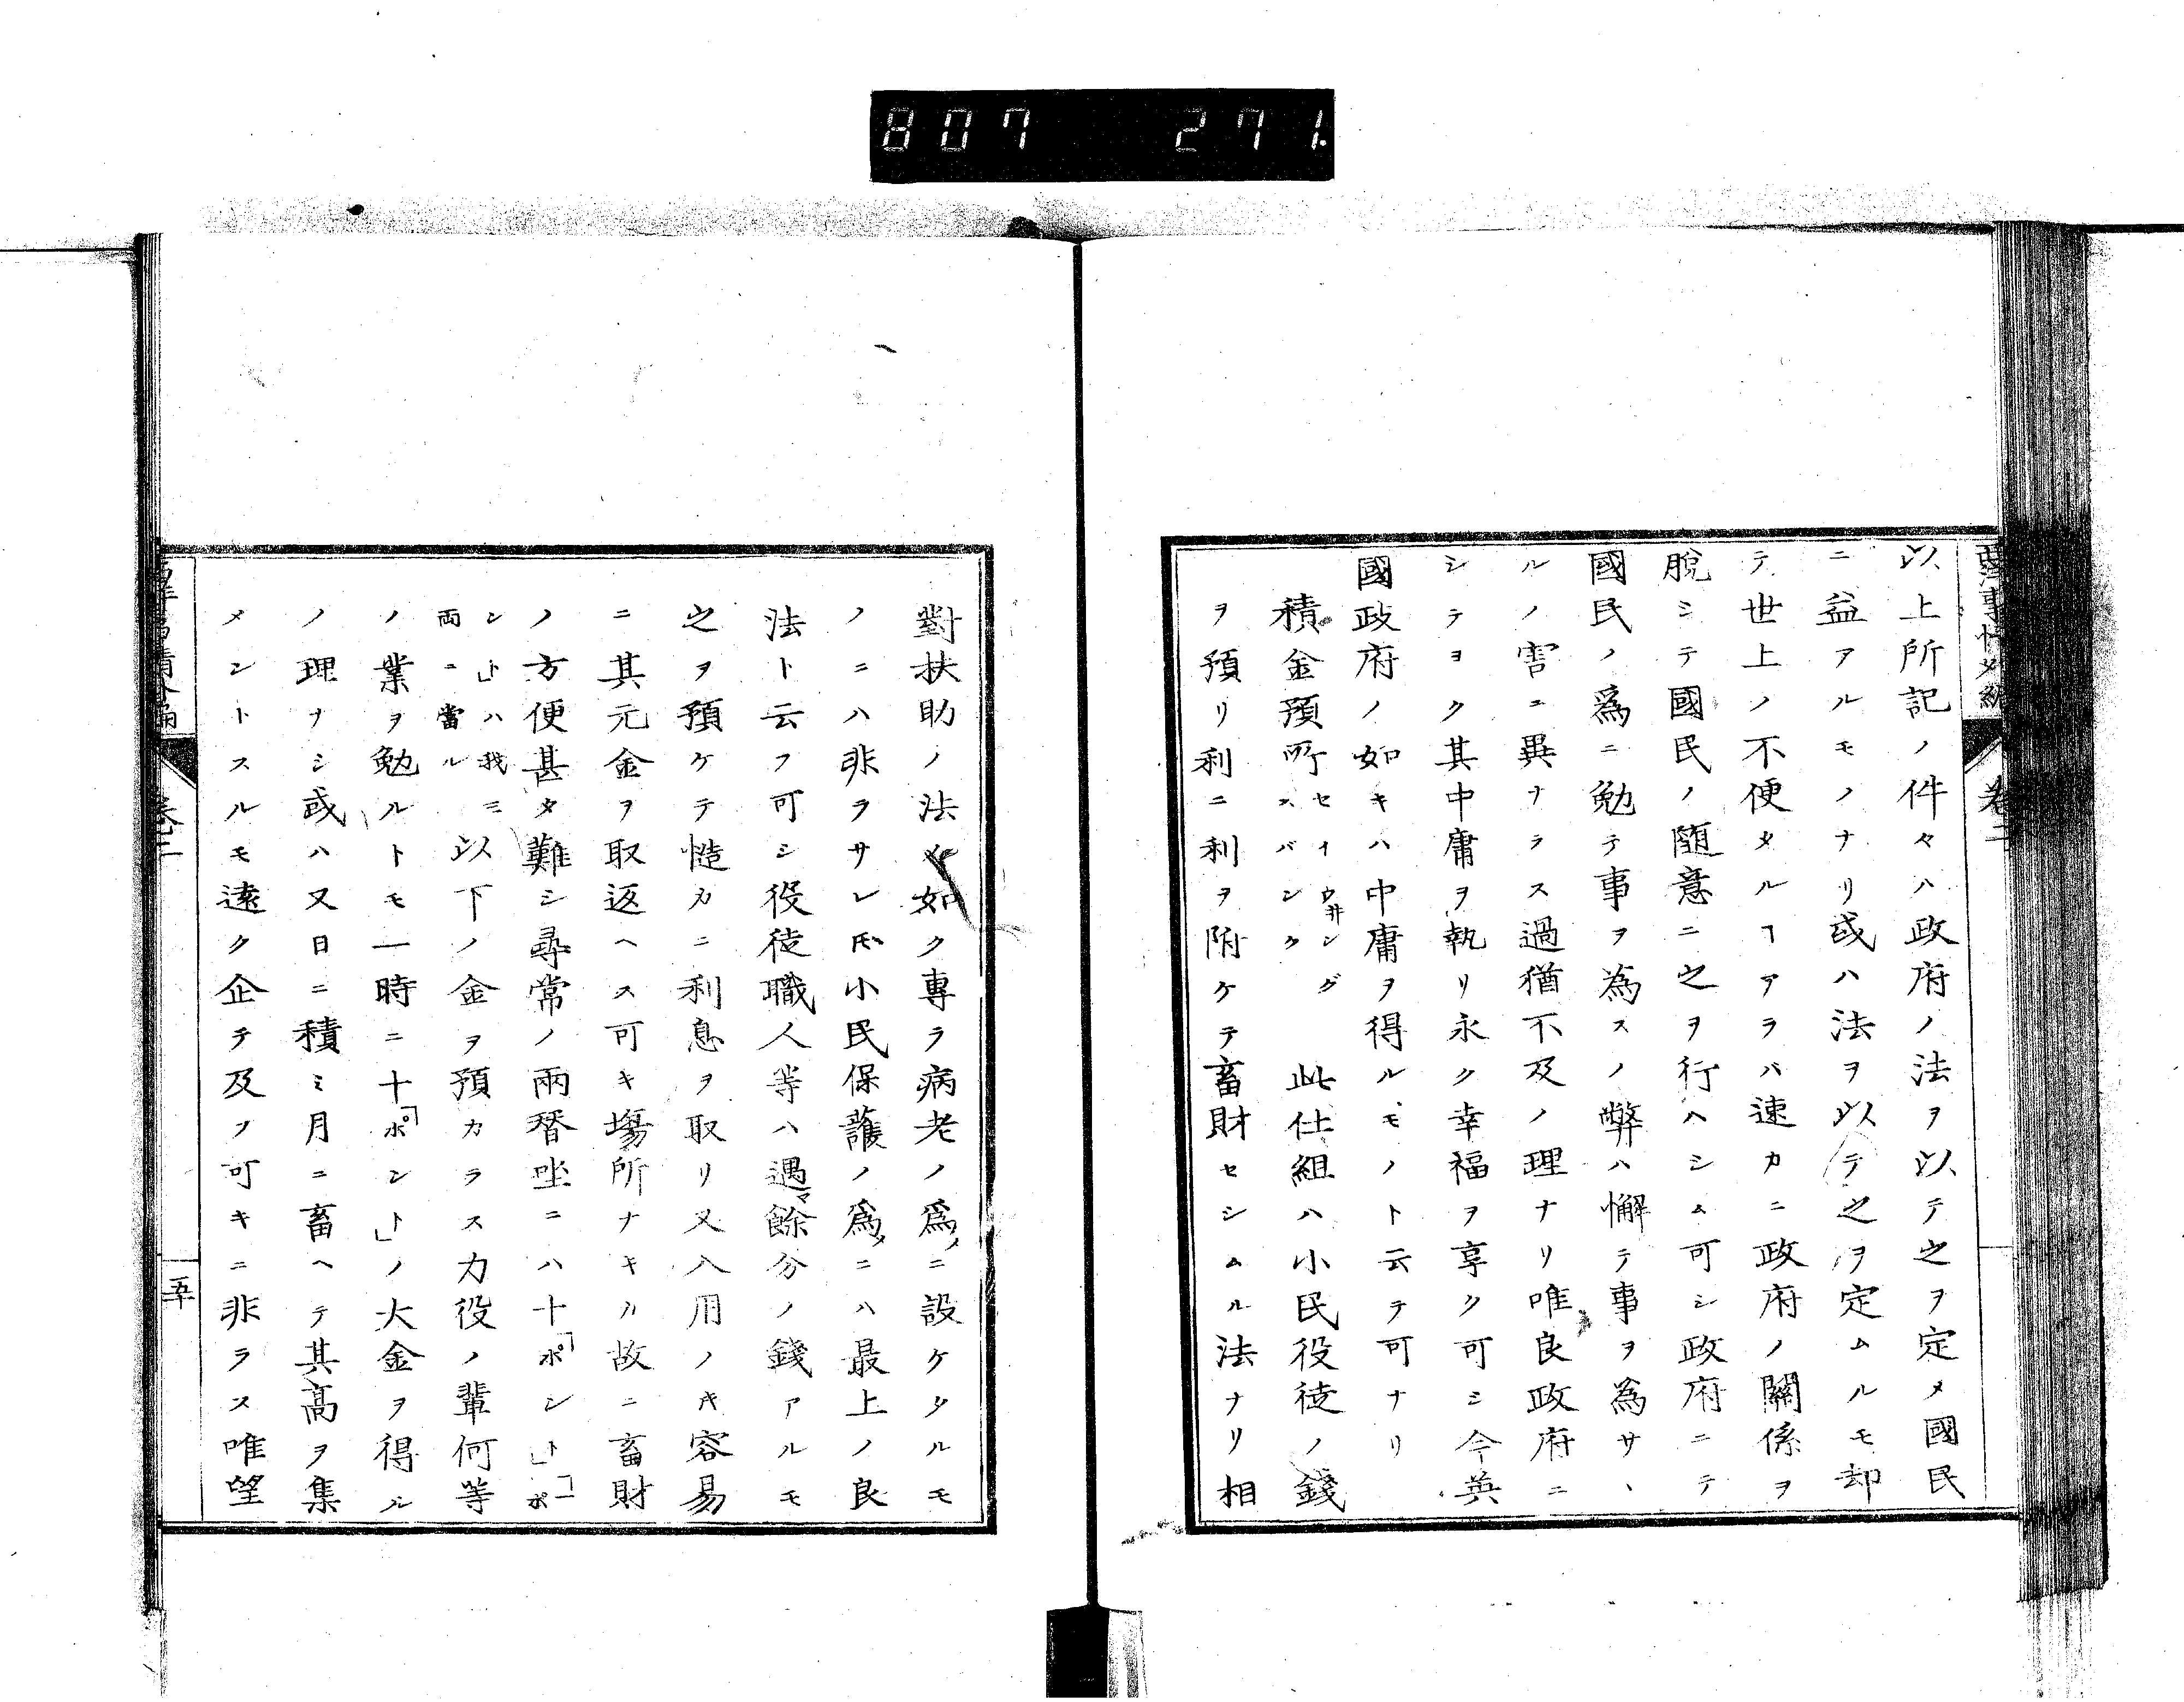 807 271.
卷二
以上所記ノ件々ハ政府ノ法ヲ以テ之ヲ定メ國民
ニ益アルモノナリ或ハ法ヲ以テ之ヲ定ムルモ却
テ世上ノ不便タルヿアラバ速カニ政府ノ關係ヲ
脫シテ國民ノ隨意ニ之ヲ行ヘシム可シ政府ニテ
國民ノ爲ニ勉テ事ヲ為スノ弊ハ懈テ事ヲ為サヽ
ルノ害ニ異ナラス過猶不及ノ理ナリ唯良政府ニ
シテヨク其中庸ヲ執リ永ク幸福ヲ享ク可シ今英
國政府ノ如キハ中庸ヲ得ルモノト云テ可ナリ
積金預所 セイウ井ング スバンク 此仕組ハ小民役徒ノ錢
ヲ預リ利ニ利ヲ附ケテ畜財セシムル法ナリ相
對扶助ノ法ノ如ク專ラ病老ノ爲メニ設ケタルモ
ノニハ非ラサレ𪜈小民保護ノ爲メニハ最上ノ良
法ト云フ可シ役徒職人等ハ遇マ餘分ノ錢アルモ
之ヲ預ケテ慥カニ利息ヲ取リ又入用ノキ容易
ニ其元金ヲ取返ヘス可キ塲所ナキカ故ニ畜財
ノ方便甚タ難シ尋常ノ兩替坐ニハ十「ポンド」一「ポ
ンド」ハ我三
両ニ當ル 以下ノ金ヲ預カラス力役ノ輩何等
ノ業ヲ勉ルトモ一時ニ十「ポンド」ノ大金ヲ得ル
ノ理ナシ或ハ又日ニ積ミ月ニ畜ヘテ其高ヲ集
メントスルモ遠ク企テ及フ可キニ非ラス唯望
卷二
五